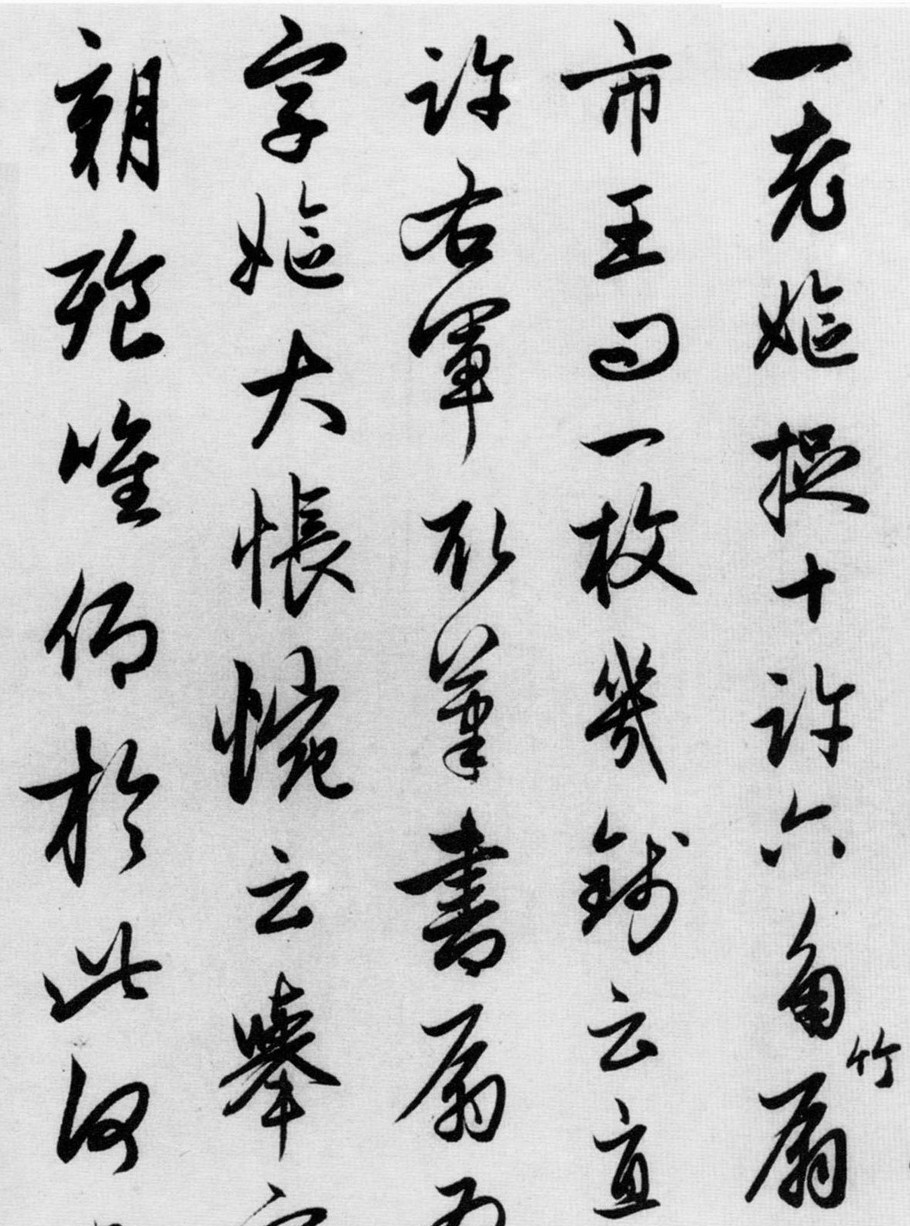 一老嫗捉十許六角竹扇
市王問一枚幾錢云直
許右軍取筆書扇五
字嫗大悵惋云舉
朝飱唯仰於此何